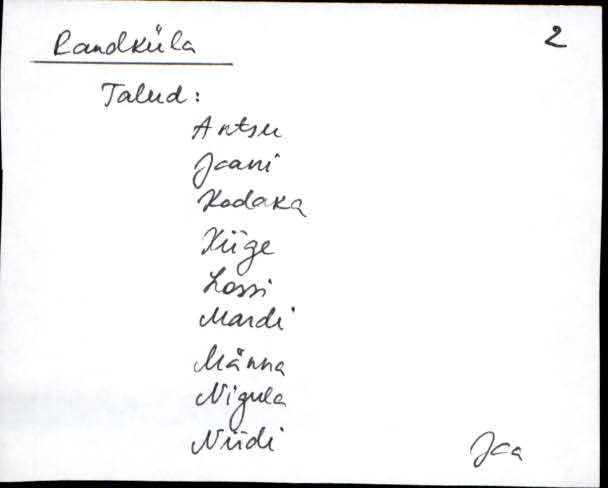 Randküla 2
Talud:
Antsu
Jaani
Kodaka
Kiige
Lossi
Mardi
Männa
Nigula
Niidi
Jaa